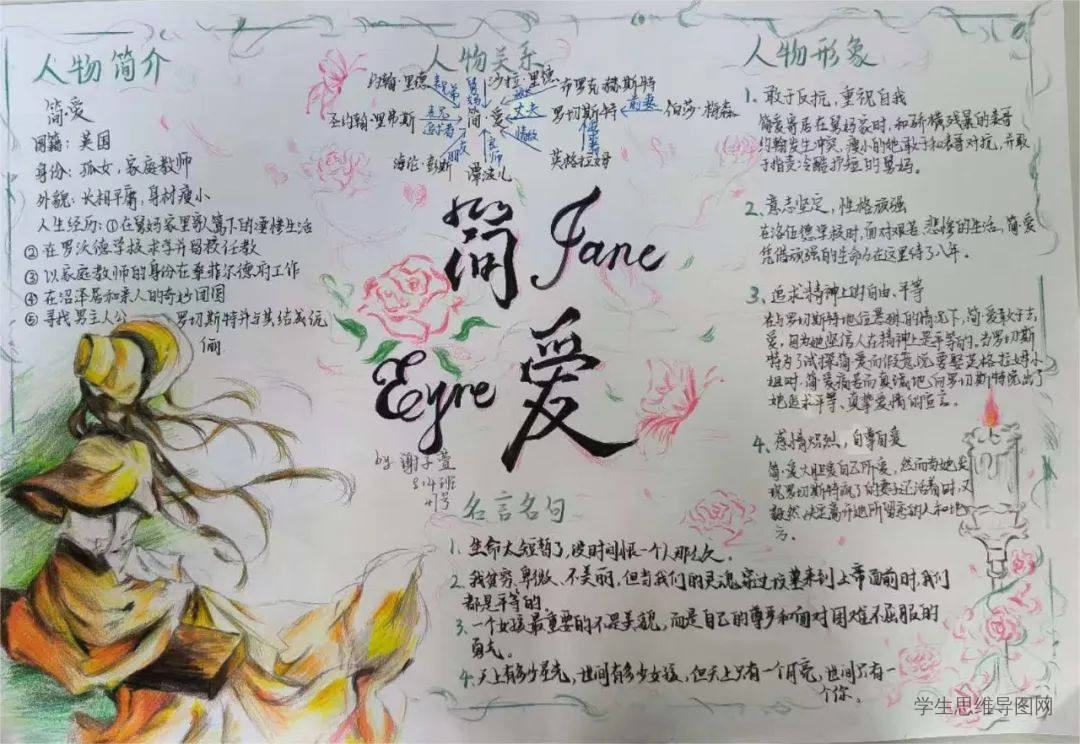 人物简介
简·爱
国籍：英国
身份：孤女，家庭教师
外貌：长相平庸，身材瘦小
人生经历：①在舅妈家里寄人篱下的凄惨生活
②在罗沃德学校求学并留校任教
③以家庭教师的身份在桑菲尔德府工作
④在沼泽居和亲人的奇妙团圆
⑤寻找男主人公 罗切斯特并与其结为伉
俪
人物关系
约翰·里德 表兄弟 舅妈 沙拉·里德
布罗克·赫斯特
圣约翰·里弗斯 表兄 追求者 简·爱 丈夫 罗切斯特 前妻 伯莎·梅森
海伦·彭斯 朋友 良师 谭波儿 情敌 英格拉姆
简 Jane
爱 Eyre
by 谢子萱
8.4班
41号
人物形象
1、敢于反抗，重视自我
简爱寄居在舅妈家时，和骄横残暴的表哥
约翰发生冲突，瘦小的她敢于和表哥对抗，并敢
于指责冷酷护短的舅妈。
2、意志坚定，性格顽强
在洛伍德里校时，面对艰苦、悲惨的生活，简·爱
凭借顽强的生命力在这里待了八年。
3、追求精神上的自由、平等
在与罗切斯特地位悬殊的情况下，简·爱敢于去
爱，因为她坚信人在精神上是平等的。当罗切斯
特为了试探简·爱而假意说要娶英格拉姆小
姐时，简·爱痛苦而真诚地向罗切斯特说出了
她追求平等、真挚爱情的宣言。
4、感情炽烈，自尊自爱
简·爱大胆爱自己所爱，然而当她发
现罗切斯特疯了的妻子还活着时，又
毅然决定离开她所留恋的人和地
方。
名言名句
1、生命太短暂了，没时间恨一个人那么久。
2、我贫穷、卑微、不美丽，但当我们的灵魂穿过坟墓来到上帝面前时，我们
都是平等的
3、一个女孩最重要的不是美貌，而是自己的尊严和面对困难不屈服的
勇气。
4、天上有多少星光，世间有多少女孩，但天上只有一个月亮，世间只有一
个你。
学生思维导图网